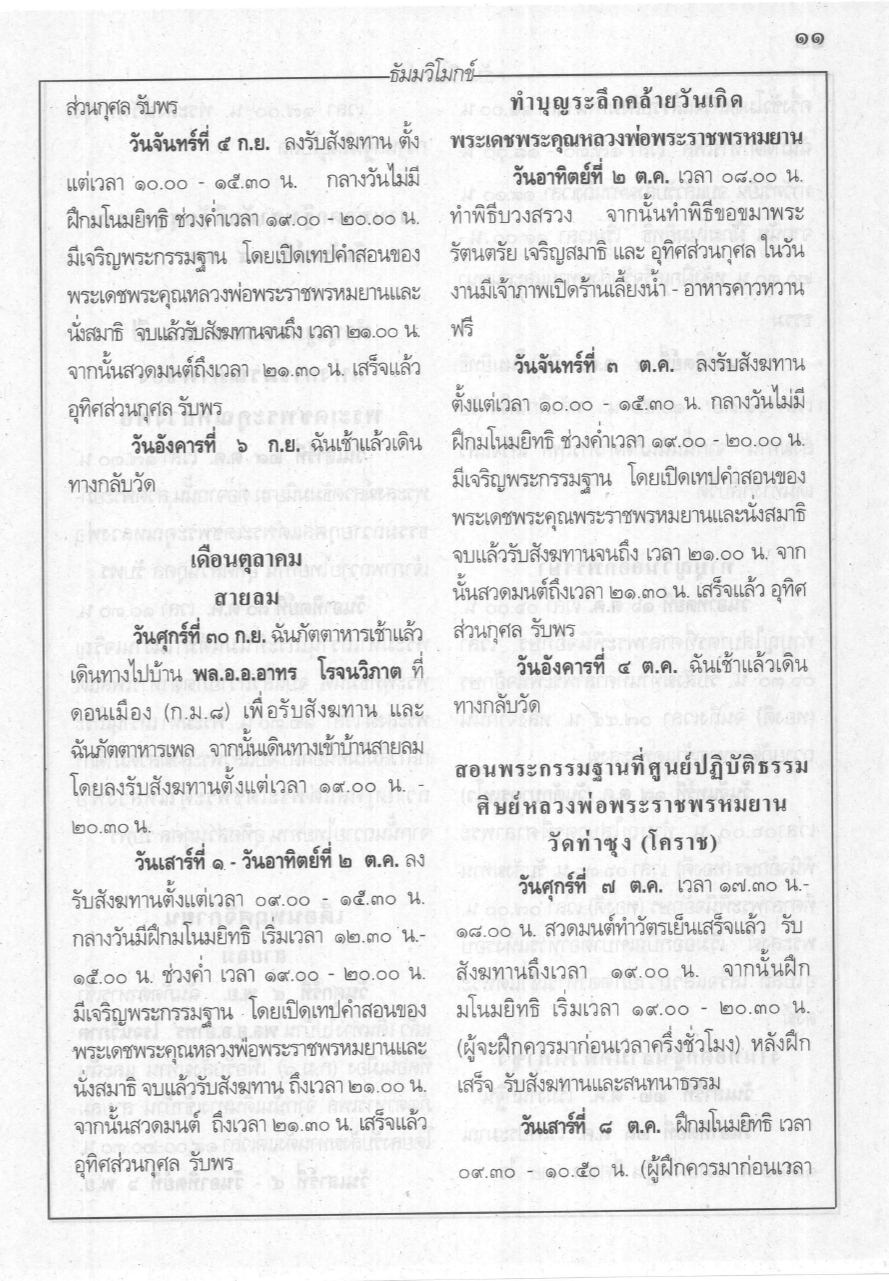 ๑๑
ธัมมวิโมกข์
ส่วนกุศล รับพร
วันจันทร์ที่ ๕ ก.ย. ลงรับสังฆทาน ตั้ง
แต่เวลา ๑๐.๐๐ - ๑๕.๓๐ น. กลางวันไม่มี
ฝึกมโนมยิทธิ ช่วงค่ำเวลา ๑๙.๐๐ - ๒๐.๐๐ น.
มีเจริญพระกรรมฐาน โดยเปิดเทปคำสอนของ
พระเดชพระคุณหลวงพ่อพระราชพรหมยานและ
นั่งสมาธิ จบแล้วรับสังฆทานจนถึง เวลา ๒๑.๐๐ น.
จากนั้นสวดมนต์ถึงเวลา ๒๑.๓๐ น. เสร็จแล้ว
อุทิศส่วนกุศล รับพร
วันอังคารที่ ๖ ก.ย. ฉันเช้าแล้วเดิน
ทางกลับวัด
เดือนตุลาคม
สายลม
วันศุกร์ที่ ๓๐ ก.ย. ฉันภัตตาหารเช้าแล้ว
เดินทางไปบ้าน พล.อ.อ.อาทร โรจนวิภาต ที่
ดอนเมือง (ก.ม.๘) เพื่อรับสังฆทาน และ
ฉันภัตตาหารเพล จากนั้นเดินทางเข้าบ้านสายลม
โดยลงรับสังฆทานตั้งแต่เวลา ๑๙.๐๐ น. -
๒๐.๓๐ น.
วันเสาร์ที่ ๑ - วันอาทิตย์ที่ ๒ ต.ค. ลง
รับสังฆทานตั้งแต่เวลา ๐๙.๐๐ - ๑๕.๓๐ น.
กลางวันมีฝึกมโนมยิทธิ เริ่มเวลา ๑๒.๓๐ น.-
๑๕.๐๐ น. ช่วงค่ำ เวลา ๑๙.๐๐ - ๒๐.๐๐ น.
มีเจริญพระกรรมฐาน โดยเปิดเทปคำสอนของ
พระเดชพระคุณหลวงพ่อพระราชพรหมยานและ
นั่งสมาธิ จบแล้วรับสังฆทาน ถึงเวลา ๒๑.๐๐ น.
จากนั้นสวดมนต์ ถึงเวลา ๒๑.๓๐ น. เสร็จแล้ว
อุทิศส่วนกุศล รับพร
ทำบุญระลึกคล้ายวันเกิด
พระเดชพระคุณหลวงพ่อพระราชพรหมยาน
วันอาทิตย์ที่ ๒ ต.ค. เวลา ๐๘.๐๐ น.
ทำพิธีบวงสรวง จากนั้นทำพิธีขอขมาพระ
รัตนตรัย เจริญสมาธิ และ อุทิศส่วนกุศล ในวัน
งานมีเจ้าภาพเปิดร้านเลี้ยงน้ำ - อาหารคาวหวาน
ฟรี
วันจันทร์ที่ ๓ ต.ค. ลงรับสังฆทาน
ตั้งแต่เวลา ๑๐.๐๐ - ๑๕.๓๐ น. กลางวันไม่มี
ฝึกมโนมยิทธิ ช่วงค่ำเวลา ๑๙.๐๐ - ๒๐.๐๐ น.
มีเจริญพระกรรมฐาน โดยเปิดเทปคำสอนของ
พระเดชพระคุณพระราชพรหมยานและนั่งสมาธิ
จบแล้วรับสังฆทานจนถึง เวลา ๒๑.๐๐ น. จาก
นั้นสวดมนต์ถึงเวลา ๒๑.๓๐ น. เสร็จแล้ว อุทิศ
ส่วนกุศล รับพร
วันอังคารที่ ๔ ต.ค. ฉันเช้าแล้วเดิน
ทางกลับวัด
สอนพระกรรมฐานที่ศูนย์ปฏิบัติธรรม
ศิษย์หลวงพ่อพระราชพรหมยาน
วัดท่าซุง (โคราช)
วันศุกร์ที่ ๗ ต.ค. เวลา ๑๗.๓๐ น.-
๑๘.๐๐ น. สวดมนต์ทำวัตรเย็นเสร็จแล้ว รับ
สังฆทานถึงเวลา ๑๙.๐๐ น. จากนั้นฝึก
มโนมยิทธิ เริ่มเวลา ๑๙.๐๐ - ๒๐.๓๐ น.
(ผู้จะฝึกควรมาก่อนเวลาครึ่งชั่วโมง) หลังฝึก
เสร็จ รับสังฆทานและสนทนาธรรม
วันเสาร์ที่ ๘ ต.ค. ฝึกมโนมยิทธิ เวลา
๐๙.๓๐ - ๑๐.๕๐ น. (ผู้ฝึกควรมาก่อนเวลา